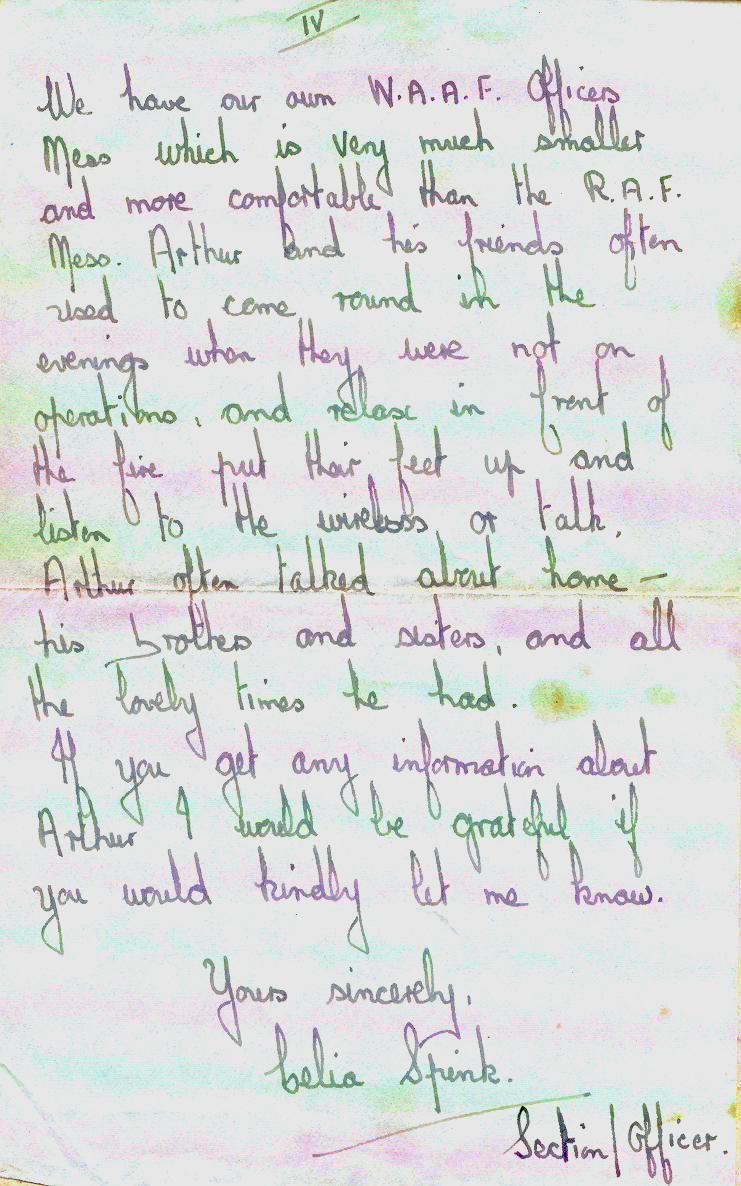 IV
We have our own W.A.A.F. Officers
Mess which is very much smaller
and more comfortable than the R.A.F.
Mess. Arthur and his friends often
used to come round in the
evenings when they were not on
operations, and relax in front of
the fire put their feet up and
listen to the wireless or talk.
Arthur often talked about home —
his brothers and sisters, and all
the lovely times he had.
If you get any information about
Arthur I would be grateful if
you would kindly let me know.
Yours sincerely,
Celia Spink.
Section/Officer.